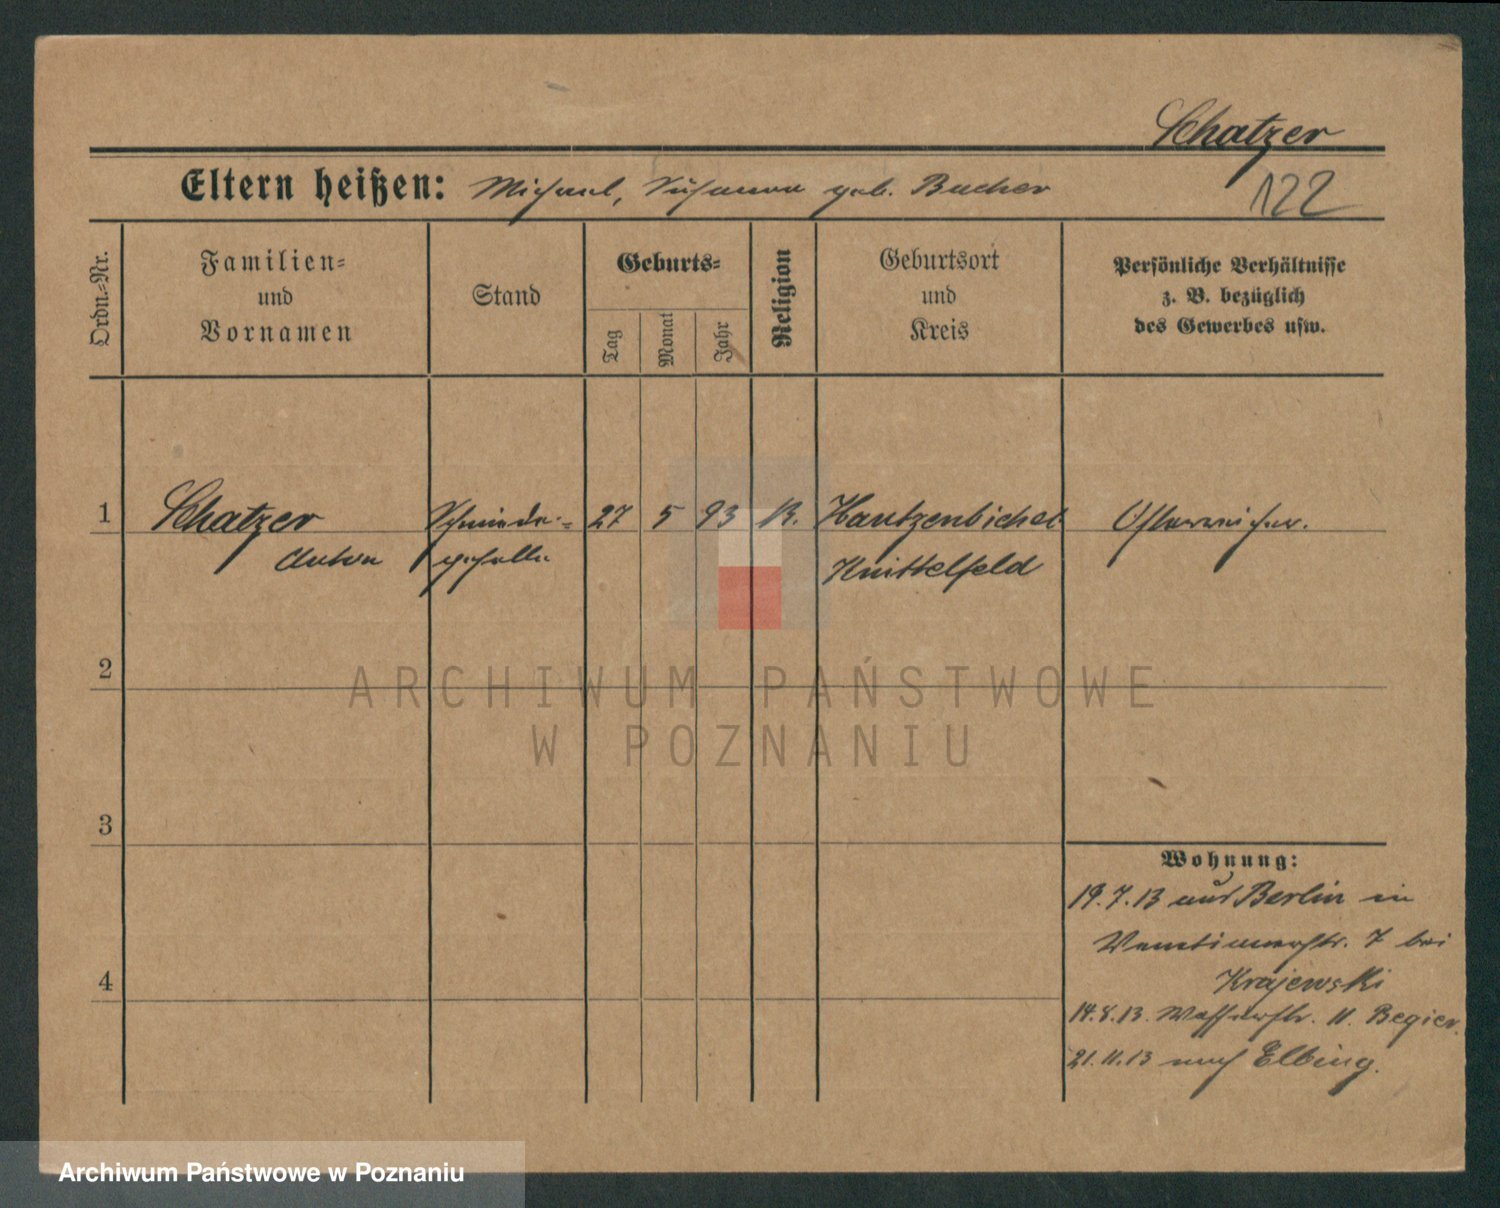 Schatzer
122
Eltern heißen: Michael, Susanna geb. Bucher
Ordn.-Nr.
Familien-
und
Vornamen
Stand
Geburts-
Tag
Monat
Jahr
Religion
Geburtsort
und
Kreis
Persönliche Verhältnisse
z. B. bezüglich
des Gewerbes usw.
1 Schatzer Schmiede- 27 5 93 K. Hautzenbichel Österreicher.
Anton geselle Knittelfeld
2
ARCHIWUM PAŃSTWOWE
W POZNANIU
3
Wohnung:
19.7.13 aus Berlin in
7 bei
Krajewski
4
14.8.13. Wasserstr. 11. Begier.
21.11.13 nach Elbing.
Archiwum Państwowe w Poznaniu